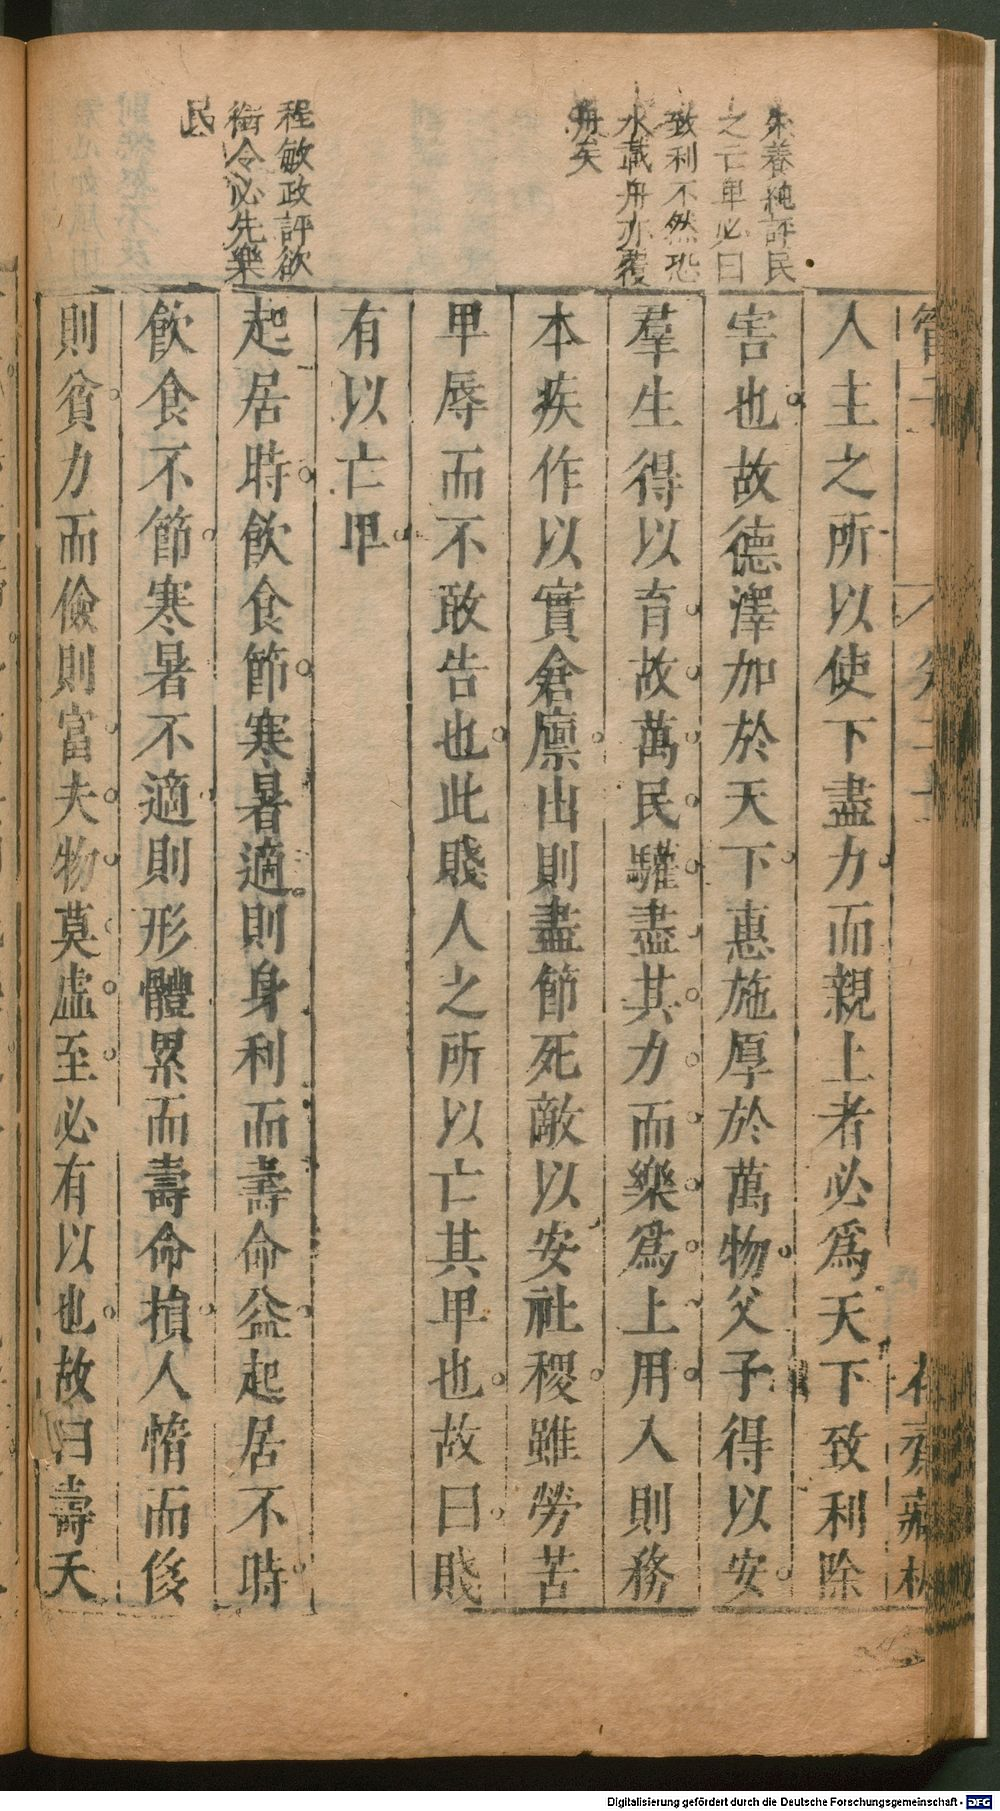 朱養純評民
之亡卑必曰
致利不然恐
水載舟亦覆
舟矣
程敏政評欲
衘令必先樂
民
管子
人主之所以使下盡力而親上者必爲天下致利除
害也故德澤加於天下惠施厚於萬物父子得以安
羣生得以育故萬民驩盡其力而樂爲上用入則務
本疾作以實倉廩出則盡節死敵以安社稷雖勞苦
卑辱而不敢告也此賤人之所以亡其卑也故曰賤
有以亡卑
起居時飲食節寒暑適則身利而壽命益起居不時
飲食不節寒暑不適則形體累而壽命損人惰而侈
則貧力而儉則富夫物莫虛至必有以也故曰壽夭
Digitalisierung gefördert durch die Deutsche Forschungsgemeinschaft - DFG